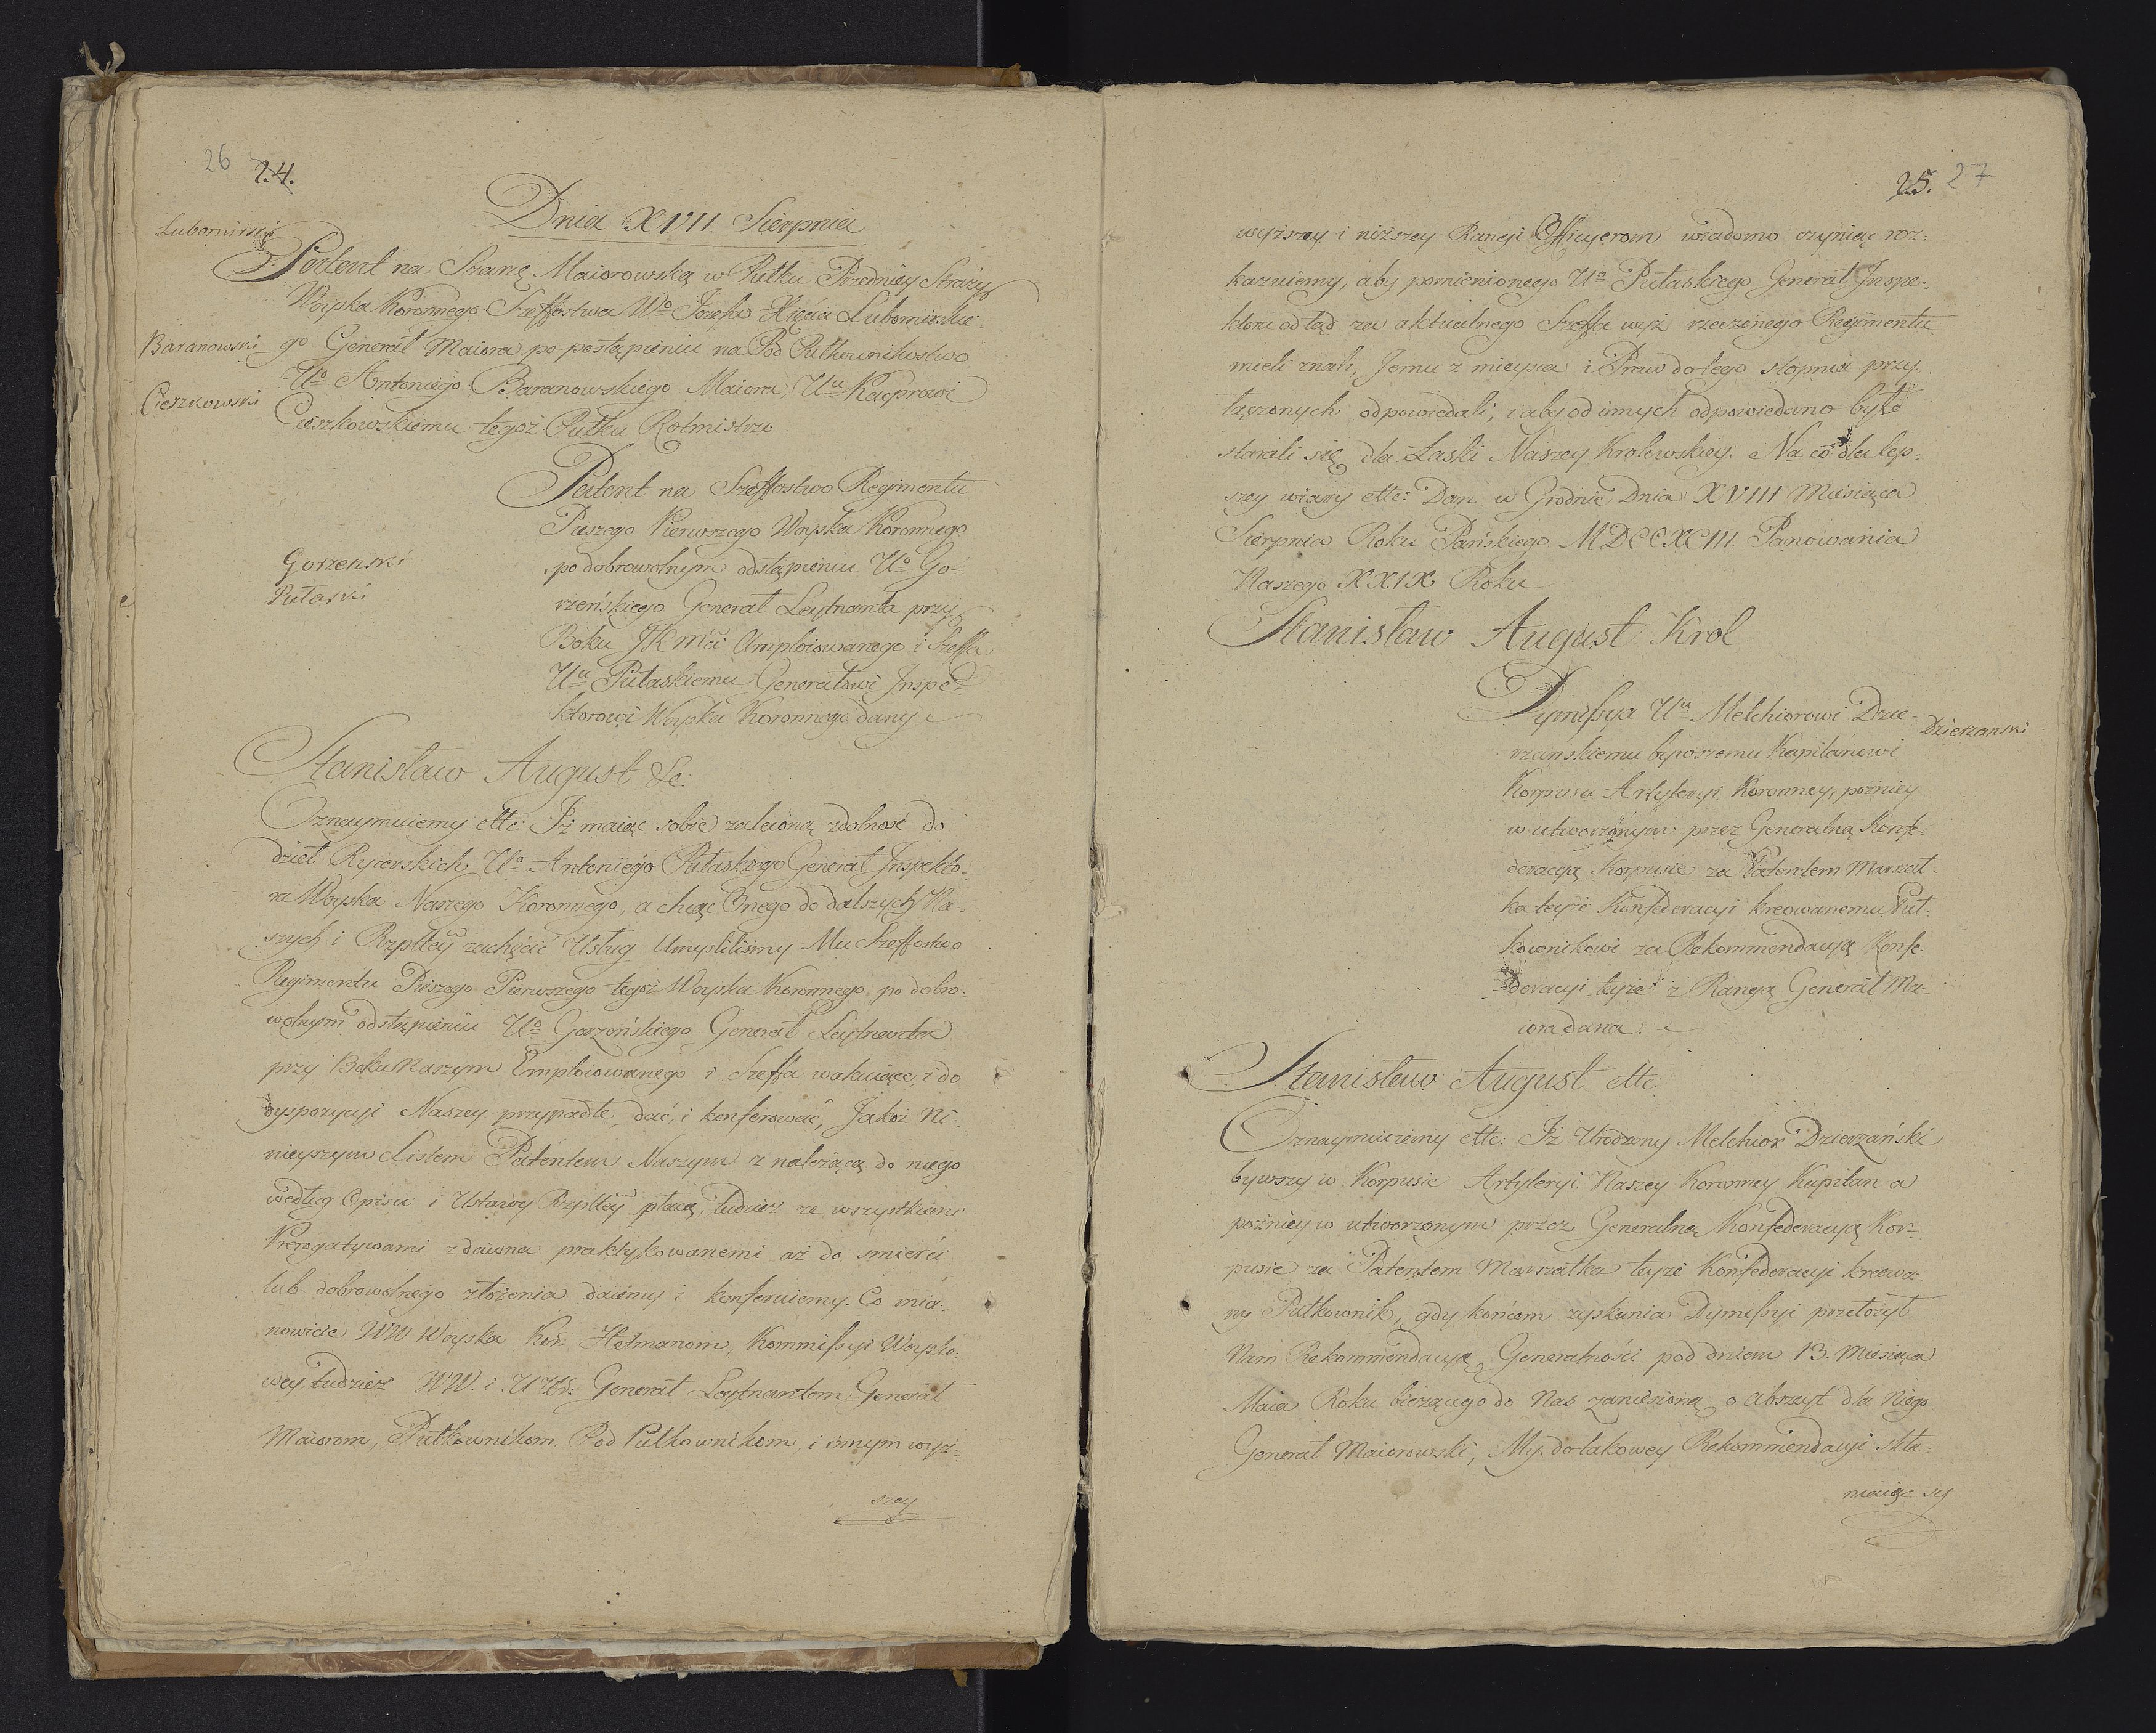 26 24.
Dnia XVII. Sierpnia
Lubomirski
Patent na Szarżę Maiorowską w Pułku Przedniey Straży
Woyska Koronnego Szeffostwa Wo Jozefa Xięcia Lubomirskie-
Baranowski
go Generał Maiora po postąpieniu na Pod Pułkownikostwo
Uo Antoniego Baranowskiego Maiora, Uu Kacprowi
Cieszkowski
Cieszkowskiemu tegoż Pułku Rotmistrzo
Patent na Szeffostwo Regimentu
Pieszego Pierwszego Woyska Koronnego
Gorzenski
po dobrowolnym odstąpieniu Uo Go-
Pułaski
rzeńskiego Generał Leytnanta przy
Boku JKMci Amploiowanego i Szeffa
Uu Pułaskiemu Generałowi Inspe-
ktorowi Woyska Koronnego dany
Stanisław August &c:
Oznaymuiemy etc: Iż maiąc sobie zaleconą zdolność do
dzieł Rycerskich Uo Antoniego Pułaskiego Generał Inspekto-
ra Woyska Naszego Koronnego, a chcąc Onego do dalszych Na-
szych i Rzpltey zachęcić Usług Umyśliliśmy Mu Szeffostwo
Regimentu Pieszego Pierwszego tegoż Woyska Koronnego po dobro-
wolnym odstąpieniu Uo Gorzeńskiego Generał Leytnanta
przy Boku Naszym Emploiowanego i Szeffa wakuiące, i do
dyspozycyi Naszey przypadłe, dać, i konferować, Jakoż Ni-
nieyszym Listem Patentem Naszym z należącą do niego
według Opisu i Ustawy Rzpltey płacą, tudzież ze wszystkiemi
Prerogatywami zdawna praktykowanemi aż do śmierci
lub dobrowolnego złożenia daiemy i konferuiemy. Co mia-
nowicie WW Woyska Kor. Hetmanom, Kommissyi Woysko-
wey tudzież WW. i UUr: Generał Leytnantom Generał
Maiorom, Pułkownikom, Pod Pułkownikom, i innym wyż-
szey
25. 27
wyższey i niższey Rangi Officyerom wiadomo czyniąc roz-
kazuiemy, aby pomienionego Uo Pułaskiego Generał Inspe-
ktora odtąd za aktualnego Szeffa wyż rzeczonego Regimentu
mieli znali, Jemu z mieysca i Praw do tego stopnia przy
łączonych odpowiedali, i aby od innych odpowiedano było
starali się, dla Łaski Naszey Krolewskiey. Na co dla lep-
szey wiary etc: Dan w Grodnie Dnia XVIII Miesiąca
Sierpnia Roku Pańskiego MDCCXCIII. Panowania
Naszego XXIX Roku
Stanisław August Krol
Dymissya Uu Melchiorowi Dzie-
Dzierzanski
rzańskiemu bywszemu Kapitanowi
Korpusu Artyleryi Koronney, pozniey
w utworzonym przez Generalną Konfe-
deracyą Korpusie za Patentem Marszał-
ka teyże Konfederacyi kreowanemu Puł-
kownikowi za Rekommendacyą Konfe-
deracyi teyże z Rangą Generał Ma-
iora dana.
Stanisław August etc.
Oznaymuiemy etc: Iż Urodzony Melchior Dzierzański
bywszy w Korpusie Artyleryi Naszey Koronney Kapitan a
pozniey w utworzonym przez Generalną Konfederacyą Kor-
pusie za Patentem Marszałka teyże Konfederacyi kreowa-
ny Pułkownik, gdy końcem zyskania Dymissyi przełożył
Nam Rekommendacyą Generalności pod dniem 13. Miesiąca
Maia Roku bieżącego do Nas zaniesioną o Abszeyt dla Niego
Generał Maiorowski, My do takowey Rekommendacyi skła-
niaiąc się